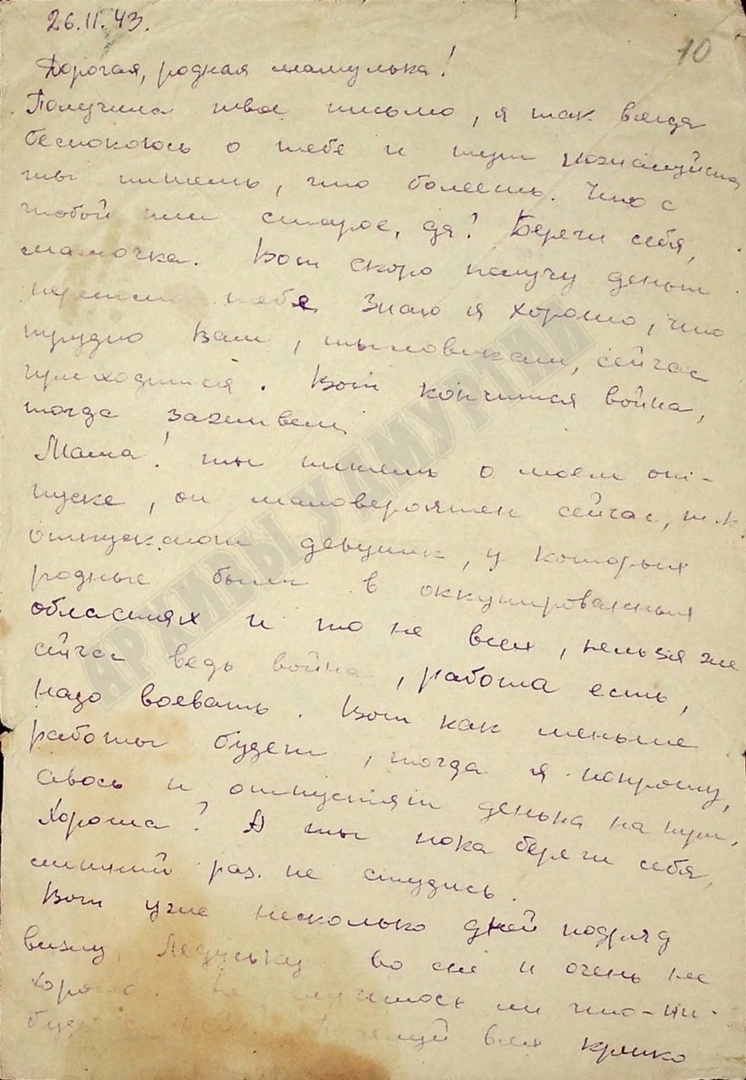 26.11.43.
10
Дорогая, родная мамулька!
Получила твое письмо, я так всегда
беспокоюсь о тебе и тут пожалуйста
ты пишешь, что болеешь. Что с
тобой или старое, да? Береги себя,
мамочка. Вот скоро получу деньги
перешлю тебе. Знаю я хорошо, что
трудно Вам, тыловикам, сейчас
приходится. Вот кончится война,
тогда заживем.
Мама! ты пишешь о моем от-
пуске, он маловероятен сейчас, т.к.
отпускают девушек, у которых
родные были в оккупированных
областях и то не всех, нельзя же
сейчас ведь война, работа есть,
надо воевать. Вот как меньше
работы будет, тогда я попрошу,
авось и отпустят денька на три.
Хорошо? А ты пока береги себя,
лишний раз не студись.
Вот уже несколько дней подряд
вижу во сне и очень не
хорошо. Не случилось ли что-ни-
всех крепко
АРХИВЫ УДМУРТИИ